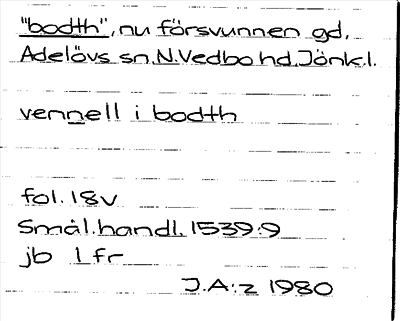 "bodth", nu försvunnen gd,
Adelövs sn.N.Vedbo hd.Jönk.l.
vennell i bodth
fol.18v
Smål.handl.1539:9
jb 1 fr
J.A:z 1980